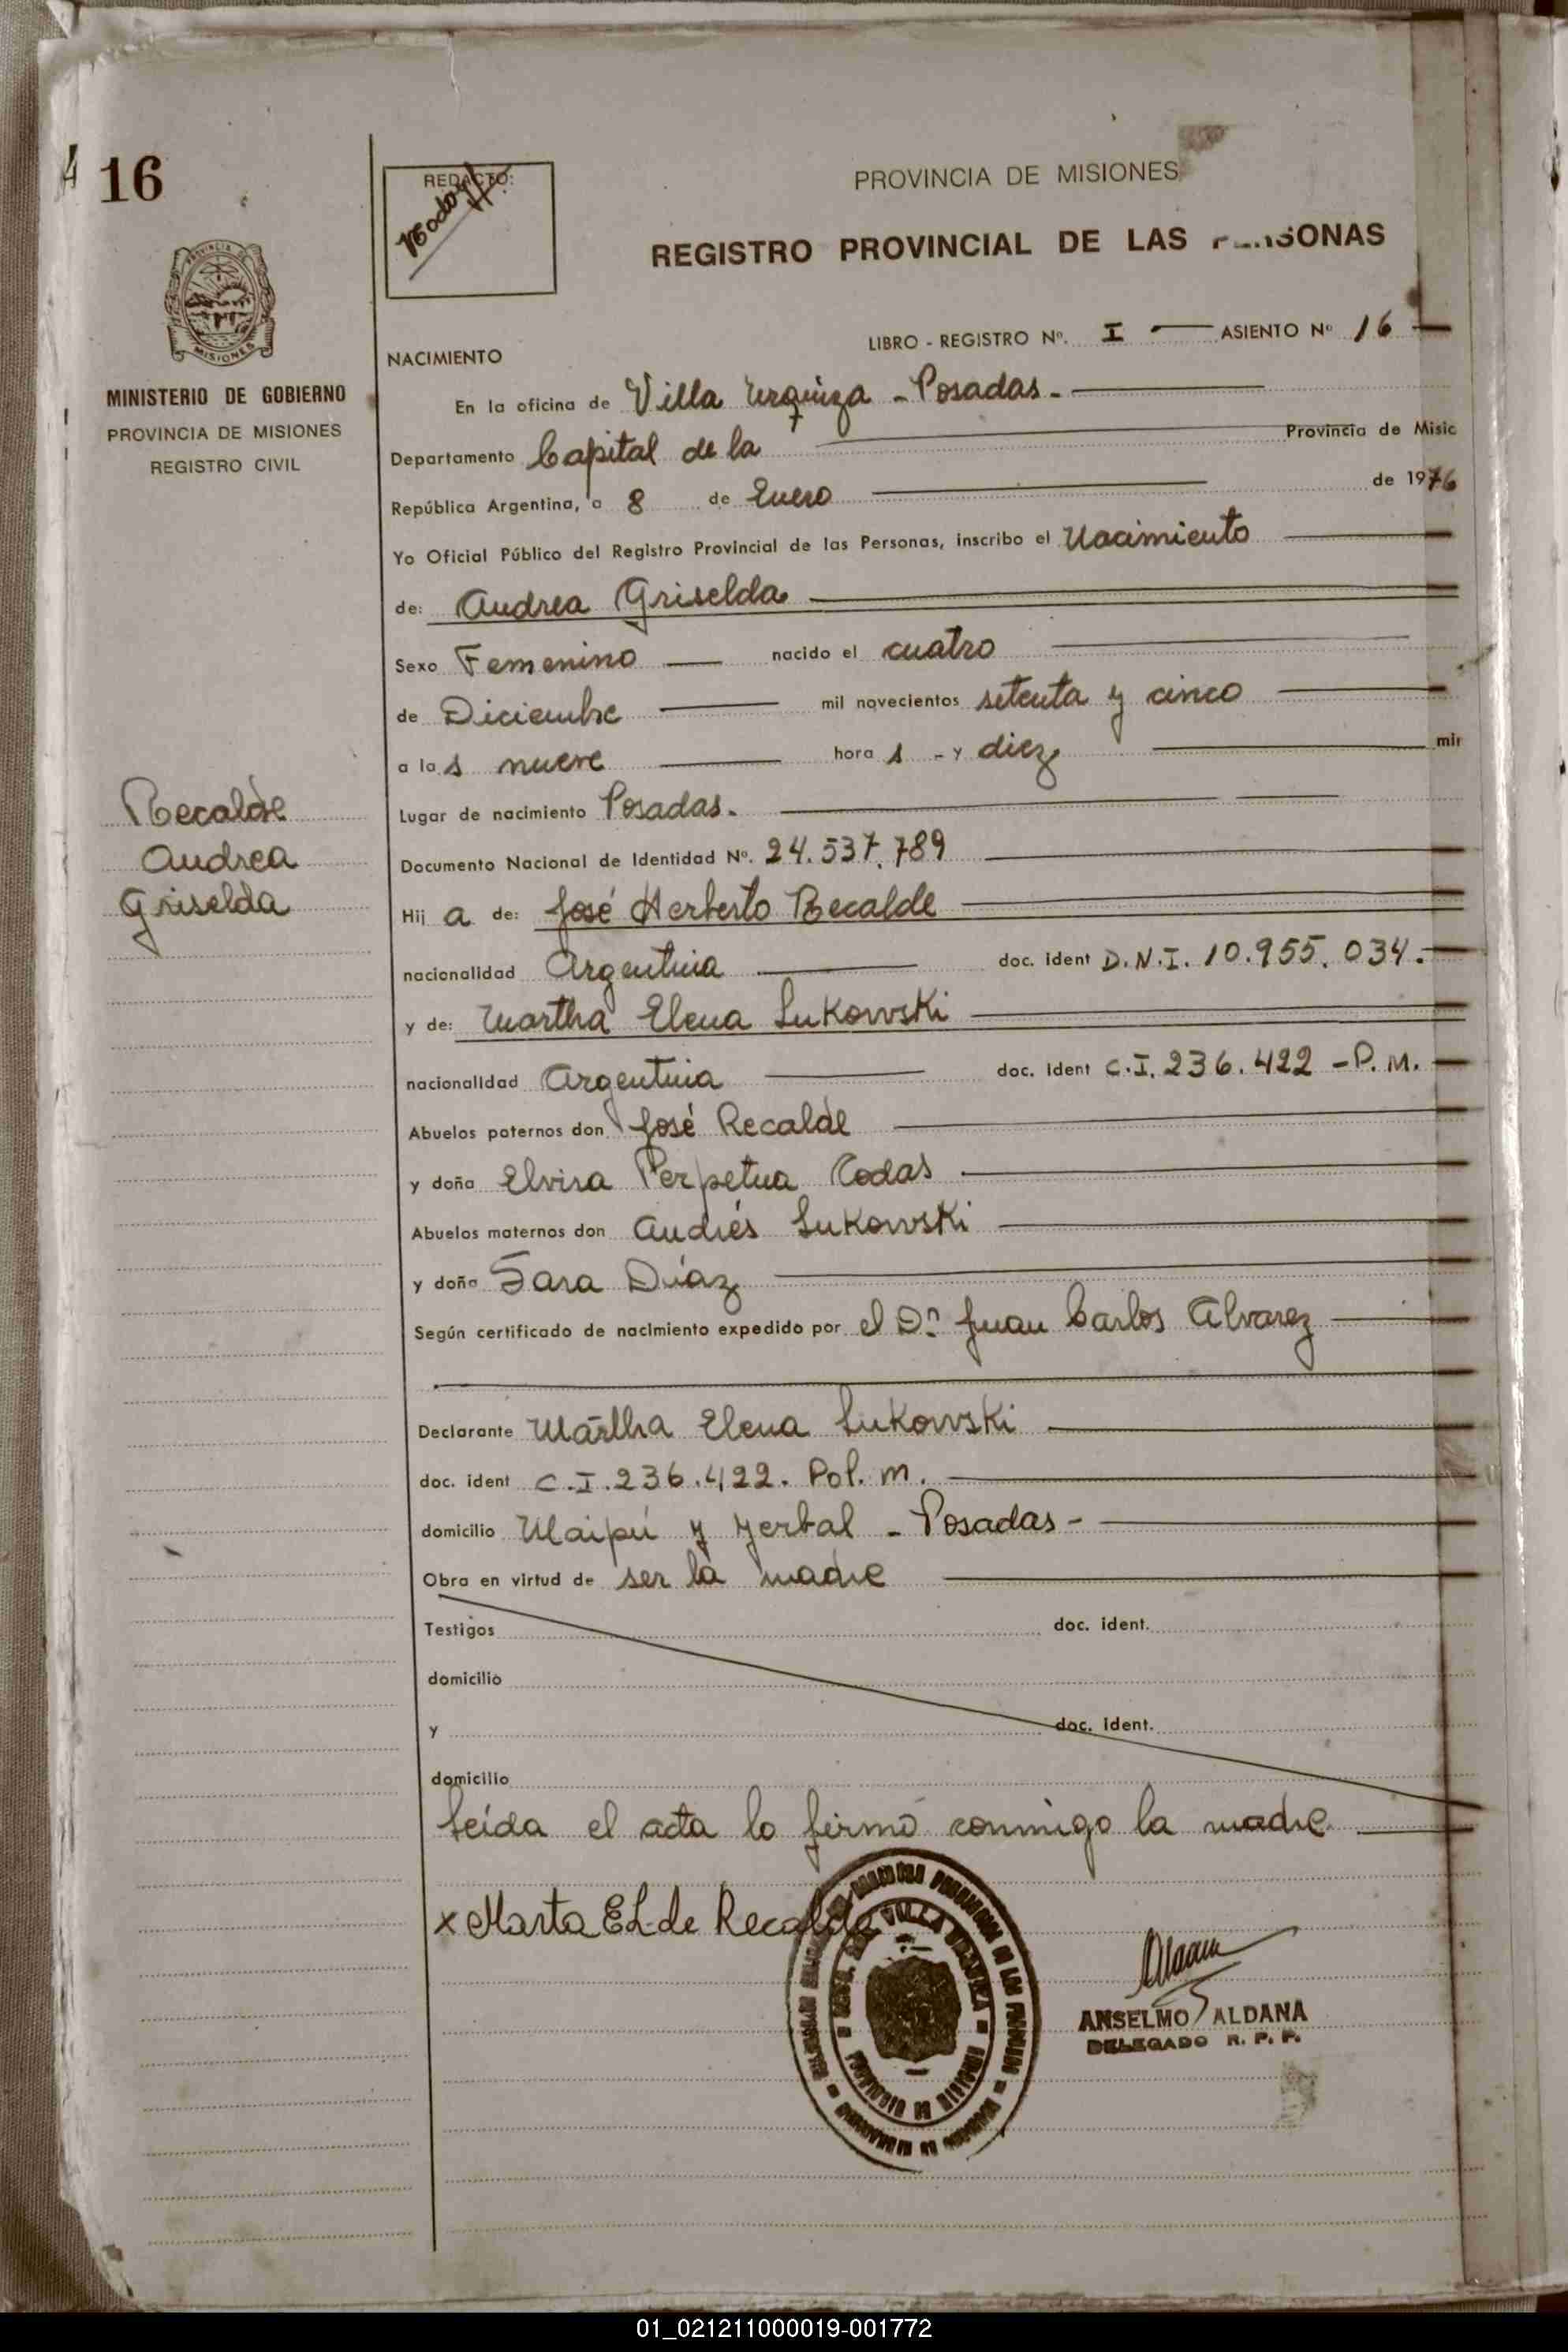 16
REDACTO:
PROVINCIA DE MISIONES
REGISTRO PROVINCIAL DE LAS PERSONAS
PROVINCIA
MISIONES
MINISTERIO DE GOBIERNO
PROVINCIA DE MISIONES
REGISTRO CIVIL
LIBRO - REGISTRO Nº. I ASIENTO Nº 16
NACIMIENTO
En la oficina de Villa Urquiza - Posadas.-
Departamento Capital de la Provincia de Misic
República Argentina, a 8 de Enero de 1976
Yo Oficial Público del Registro Provincial de las Personas, inscribo el Nacimiento
de: Andrea Griselda
Sexo Femenino nacido el cuatro
de Diciembre mil novecientos setenta y cinco
a las nueve horas - y diez min
Lugar de nacimiento Posadas.
Documento Nacional de Identidad Nº. 24.537.789
Hija de: José Herberto Recalde
nacionalidad Argentina doc. ident D.N.I. 10.955.034.-
y de: Martha Elena Lukowski
nacionalidad Argentina doc. ident C.I. 236.422 - P.M.
Abuelos paternos don José Recalde
y doña Elvira Perpetua Rodas
Abuelos maternos don Andrés Lukowski
y doña Sara Díaz
Según certificado de nacimiento expedido por el Dr. Juan Carlos Alvarez
Declarante Martha Elena Lukowski
doc. ident C.I. 236.422. Pol. M.
domicilio Maipú y Yerbal - Posadas -
Obra en virtud de ser la madre
Testigos doc. ident.
domicilio
y doc. ident.
domicilio
Leída el acta lo firmó conmigo la madre
Recalde
Andrea
Griselda
x Marta E L. de Recalde
VILLA URQUIZA
PROVINCIA DE MISIONES
ANSELMO ALDANA
DELEGADO R. P. P.
01_021211000019-001772